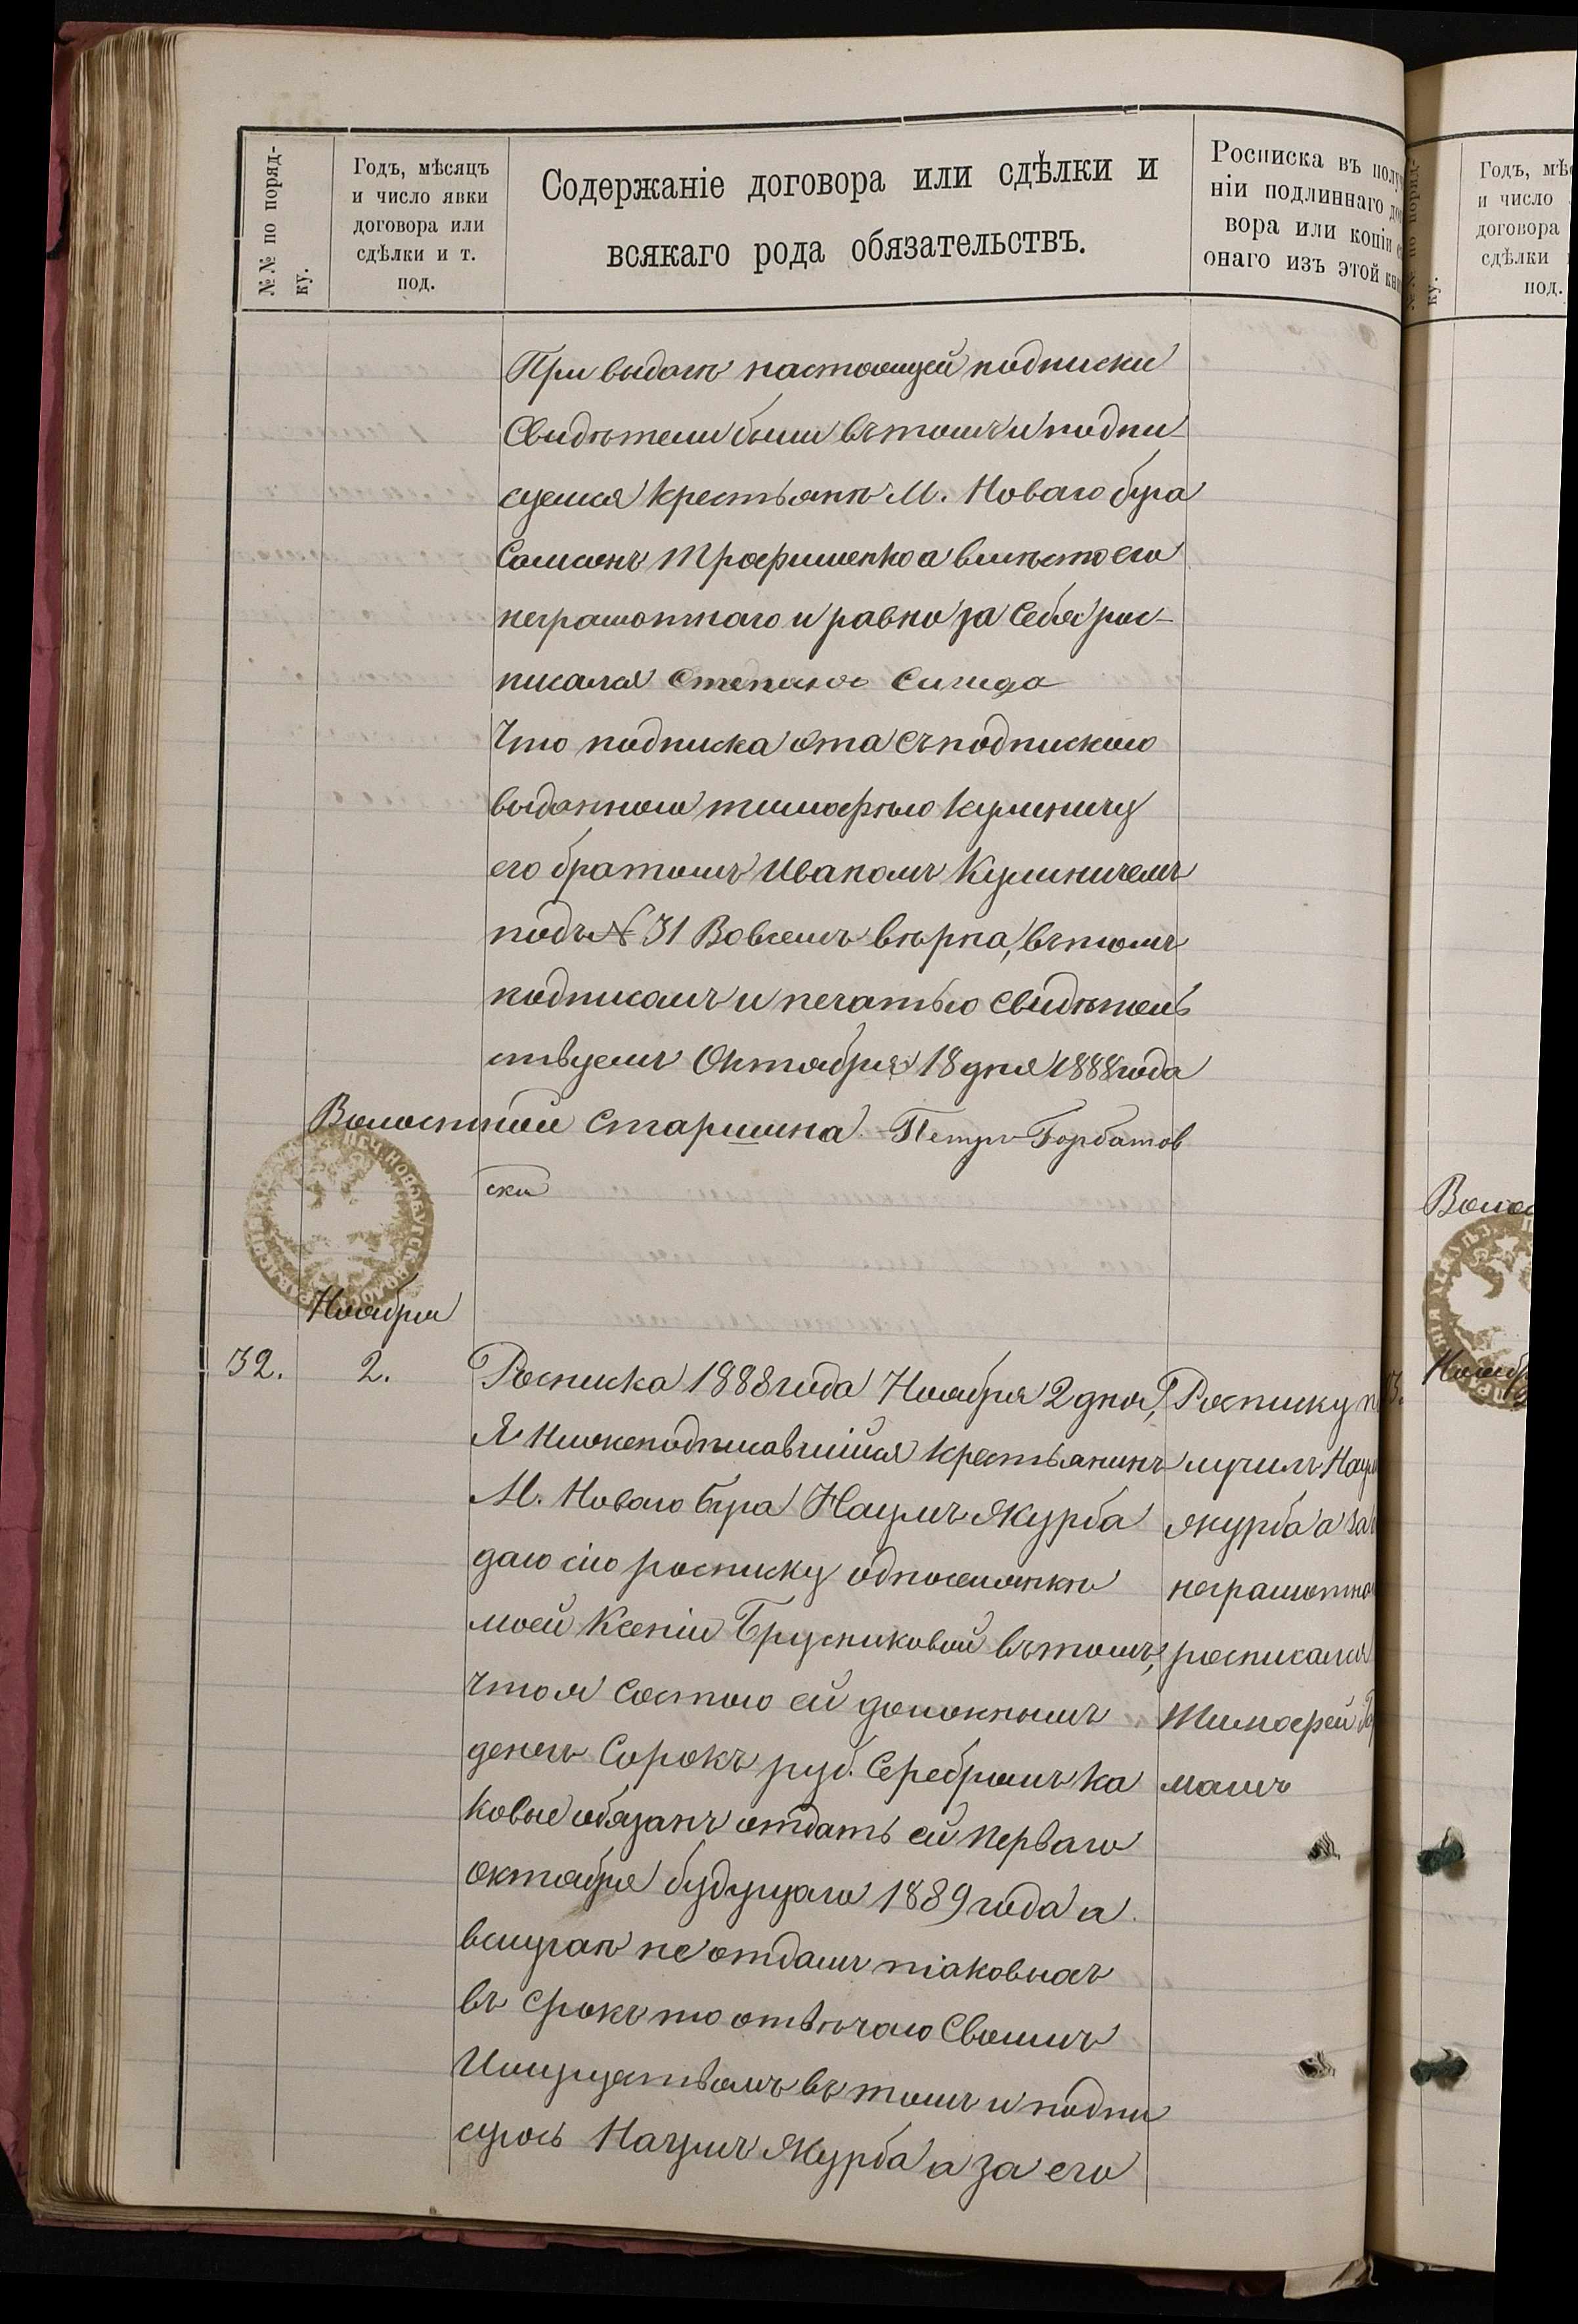 №№ по поряд-
ку.
Годъ, мѣсяцъ
и число явки
договора или
сдѣлки и т.
под.
Содержаніе договора или сдѣлки и
всякаго рода обязательствъ.
Росписка въ полу
ніи подлиннаго до
вора или копіи с
онаго изъ этой кн
При выдачѣ настоящей подписки
Свидѣтели были вътомъ и подпи
суемся крестьяне М. Новаго буга
Самсонъ Трофименко а вмѣсто его
неграмотнаго и равно за себя рос-
писался Степанъ Сигида
Что подписка эта съ подпискою
выданною тимофѣю Кулиничу
его братомъ Иваномъ Кулиничемъ
подъ № 31 Вовсемъ вѣрна, вътомъ
подписомъ и печатью свидѣтель
ствуемъ Октября 18 дня 1888 года
Волостной Старшина Петръ Горбатов
ски
Ноября
32.
2.
Росписка 1888 года Ноября 2 дня,
Я Нижеподписавшійся крестьянинъ
М. Новаго Буга Наумъ Якурба
даю сію росписку односелянкѣ
моей Ксеніи Брусниковой вътомъ,
что я состою ей должнымъ
денегъ Сорокъ руб. Серебромъ ка
ковые обязанъ отдать ей перваго
октября будущаго 1889 года а
вслучаѣ не отдамъ таковыхъ
въ срокъ то отвѣчаю Своимъ
Имуществомъ въ томъ и подпи
суюсь Наумъ Якурба а за его
Росписку п
лучилъ Наум
якурба а за
неграмотно
росписался
Тимофей
махъ
Годъ, мѣс
и число
договора
сдѣлки
под.
Волос
Ноябр